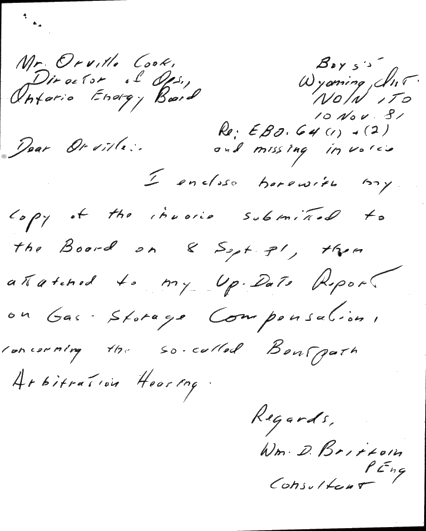 Mr. Orville Cook,
Director of Ops,
Ontario Energy Board
Box 55
Wyoming, Ont.
N0N 1T0
10 Nov. 81
Re: EBO. 64 (1) + (2)
and missing invoice
Dear Orville:-
I enclose herewith my
copy of the invoice submitted to
the Board on 8 Sept. 81, then
attached to my Up-Date Report
on Gas-Storage Compensation,
concerning the so-called Bentpath
Arbitration Hearing.
Regards,
Wm. D. Brittain
P Eng
Consultant